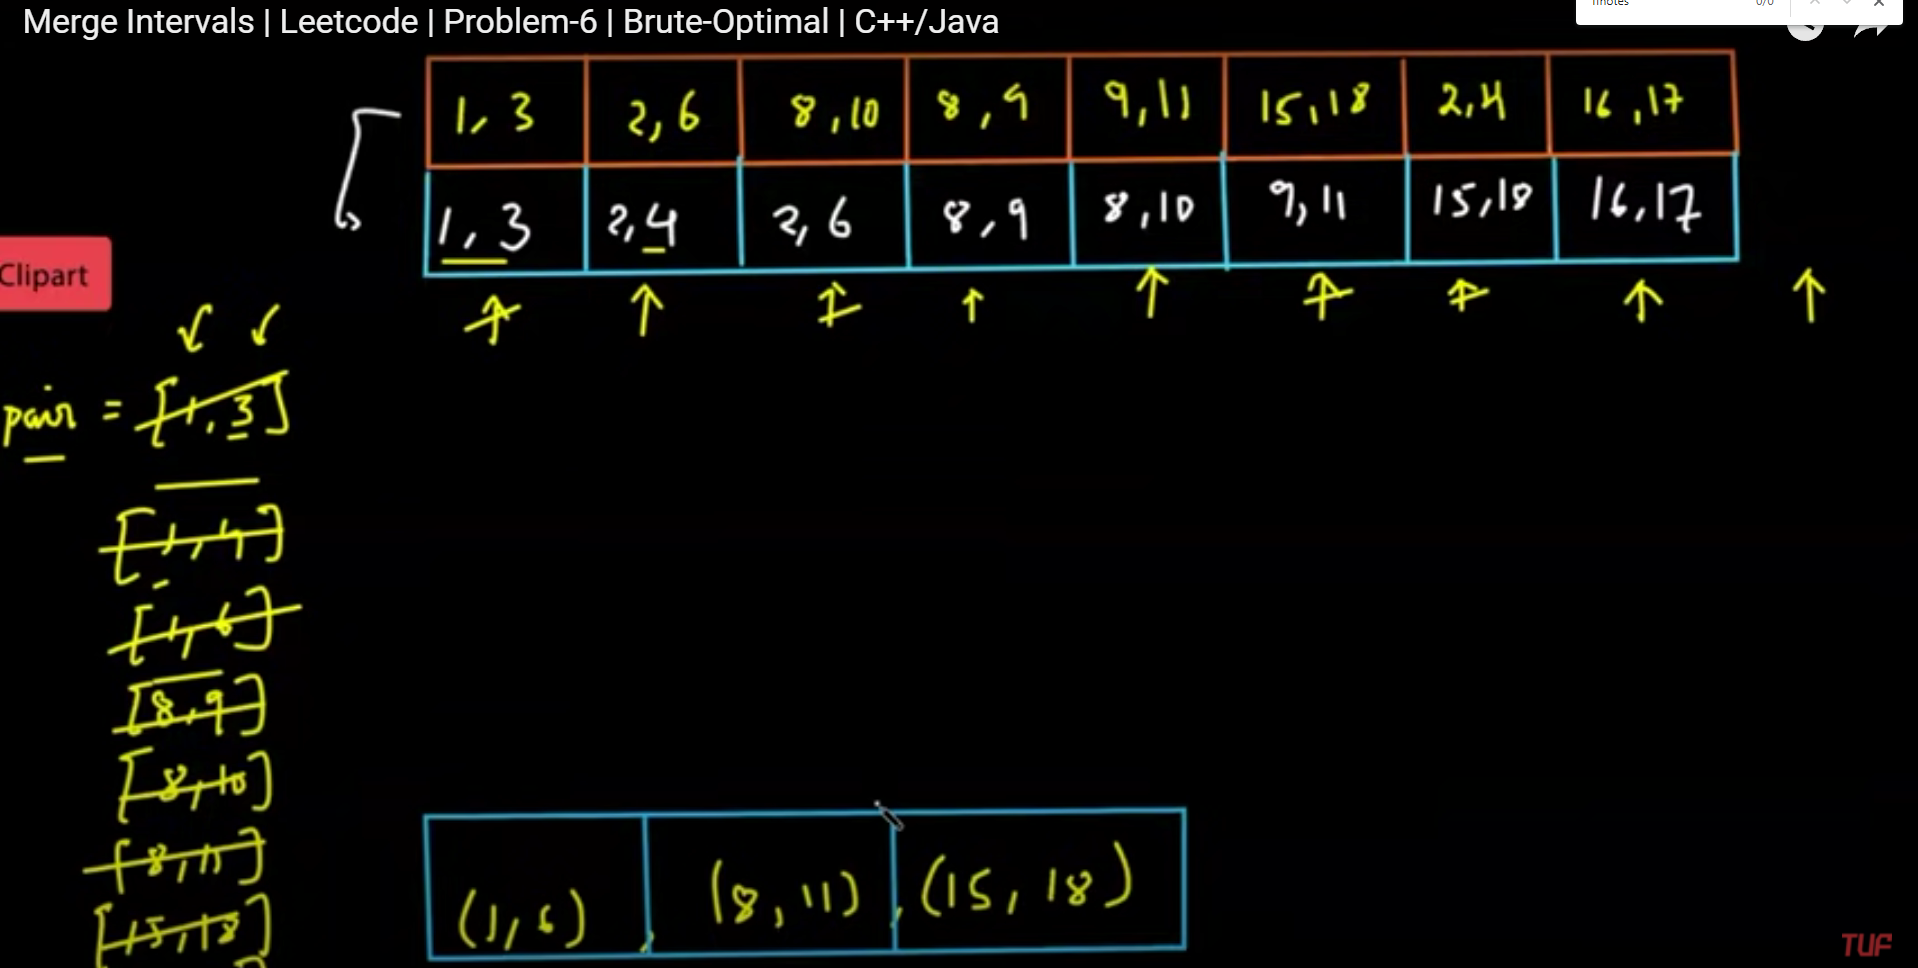 Merge Intervals | Leetcode | Problem-6 | Brute-Optimal | C++/Java
0/0
1, 3 2, 6 8, 10 8, 9 9, 11 15, 18 2, 4 16, 17
1, 3 2, 4 2, 6 8, 9 8, 10 9, 11 15, 18 16, 17
Clipart
pair = [1, 3]
[1, 4]
[1, 6]
[8, 9]
[8, 10]
[8, 11]
(1, 6), (8, 11), (15, 18)
[15, 18]
TUF